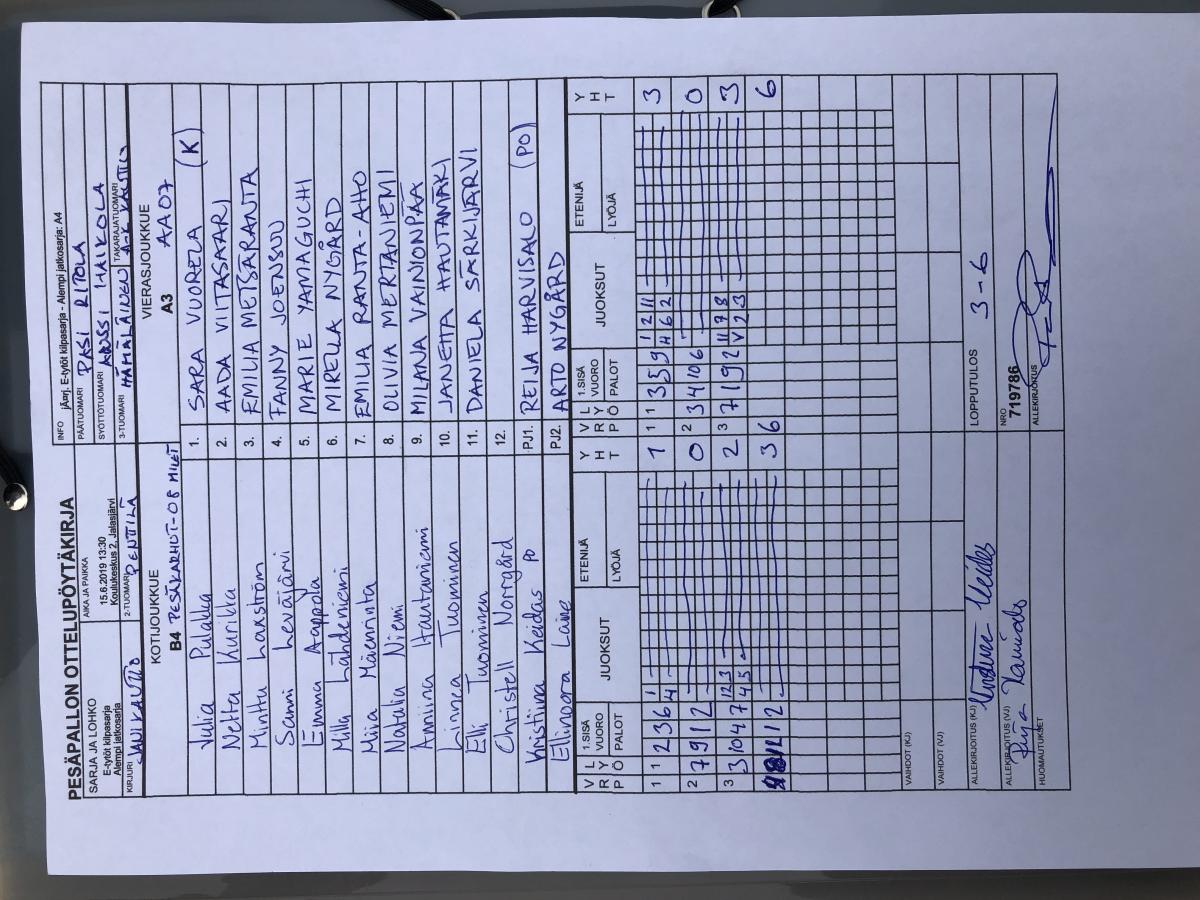 PESÄPALLON OTTELUPÖYTÄKIRJA
SARJA JA LOHKO
E-tytöt kilpasarja
Alempi jatkosarja
AIKA JA PAIKKA
15.6.2019 13:30
Koulukeskus 2, Jalasjärvi
INFO jÄarj. E-tytöt kilpasarja - Alempi jatkosarja: A4
PÄÄTUOMARI PASI RITOLA
SYÖTTÖTUOMARI ANSSI HAIKOLA
KIRJURI
2-TUOMARI PENTTILÄ
3-TUOMARI HÄMÄLÄINEN
TAKARAJATUOMARI
KOTIJOUKKUE
B4 PESÄKARHUT-08 MILET
VIERASJOUKKUE
A3 AA07
Julia Pulakka 1. SARA VUORELA (K)
Netta Kurikka 2. AADA VIITASAARI
Minttu Laxström 3. EMILIA METSÄRANTA
Sanni Leväjärvi 4. FANNY JOENSUU
Emma Aappola 5. MARIE YAMAGUCHI
Milla Lähdeniemi 6. MIRELLA NYGÅRD
Miia Männinta 7. EMILIA RANTA-AHO
Natalia Niemi 8. OLIVIA MERTANIEMI
Anniina Hautaniemi 9. MILANA VAINIONPÄÄ
Linnea Tuominen 10. JANETTA HAUTAMÄKI
Elli Tuominen 11. DANIELA SÄRKIJÄRVI
Christell Norrgård 12.
Kristiina Keidas PO PJ1. REIJA HARVISALO (PO)
Ellinoora Laine PJ2. ARTO NYGÅRD
VRP LYÖ 1.SISÄ VUORO PALOT JUOKSUT ETENIJÄ LYÖJÄ YHT VRP LYÖ 1.SISÄ VUORO PALOT JUOKSUT ETENIJÄ LYÖJÄ YHT
1 1 2 3 6 1 4 1 1 1 3 5 9 1 2 11 4 6 2 3
2 7 9 1 2 0 2 3 4 10 6 0
3 3 10 4 7 12 3 4 5 2 3 7 1 9 2 11 7 8 V 2 3 3
12 3 6 6
VAIHDOT (KJ)
VAIHDOT (VJ)
ALLEKIRJOITUS (KJ)
LOPPUTULOS 3-6
ALLEKIRJOITUS (VJ)
NRO
719786
HUOMAUTUKSET
ALLEKIRJOITUS